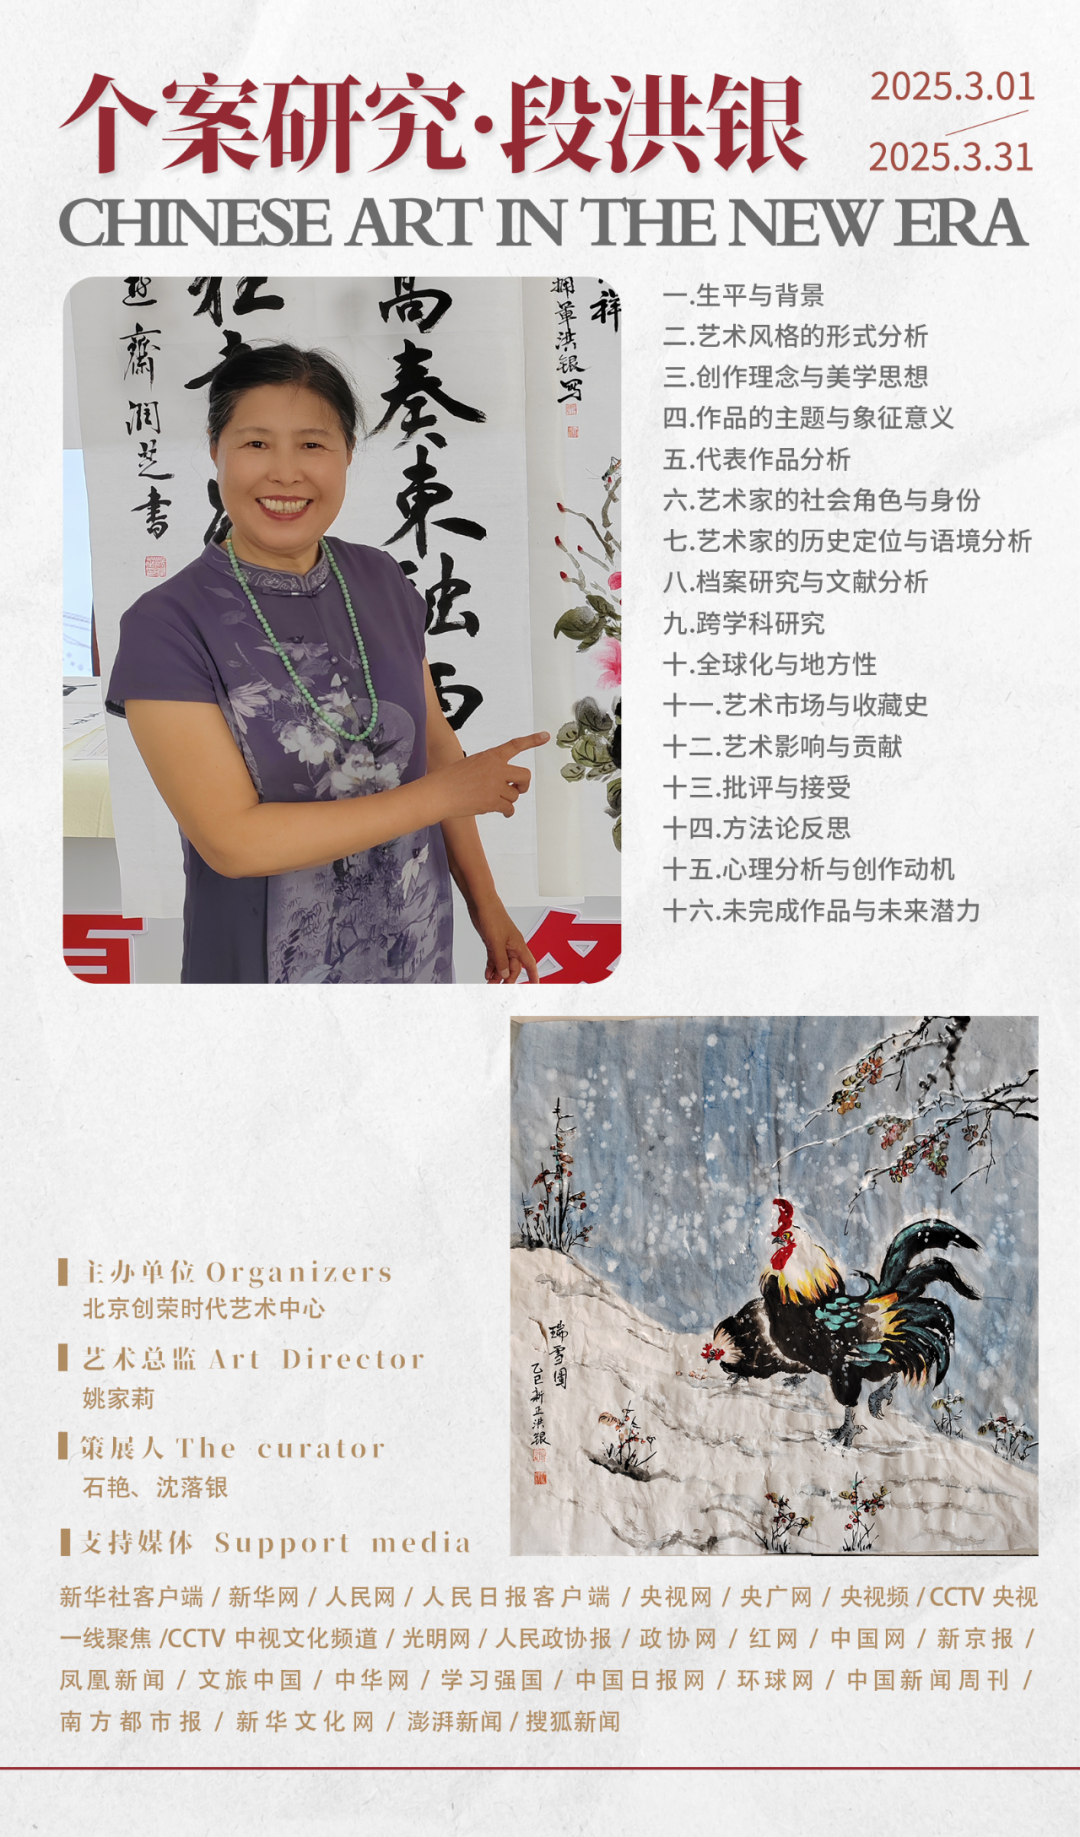 个案研究·段洪银
2025.3.01
2025.3.31
CHINESE ART IN THE NEW ERA
高奏东
斋润芝书
祥
拥军洪银写
一.生平与背景
二.艺术风格的形式分析
三.创作理念与美学思想
四.作品的主题与象征意义
五.代表作品分析
六.艺术家的社会角色与身份
七.艺术家的历史定位与语境分析
八.档案研究与文献分析
九.跨学科研究
十.全球化与地方性
十一.艺术市场与收藏史
十二.艺术影响与贡献
十三.批评与接受
十四.方法论反思
十五.心理分析与创作动机
十六.未完成作品与未来潜力
瑞雪图
乙巳新正洪银
主办单位 Organizers
北京创荣时代艺术中心
艺术总监 Art Director
姚家莉
策展人 The curator
石艳、沈落银
支持媒体 Support media
新华社客户端 / 新华网 / 人民网 / 人民日报客户端 / 央视网 / 央广网 / 央视频 / CCTV 央视
一线聚焦 /CCTV 中视文化频道 / 光明网 / 人民政协报 / 政协网 / 红网 / 中国网 / 新京报 /
凤凰新闻 / 文旅中国 / 中华网 / 学习强国 / 中国日报网 / 环球网 / 中国新闻周刊 /
南方都市报 / 新华文化网 / 澎湃新闻 / 搜狐新闻